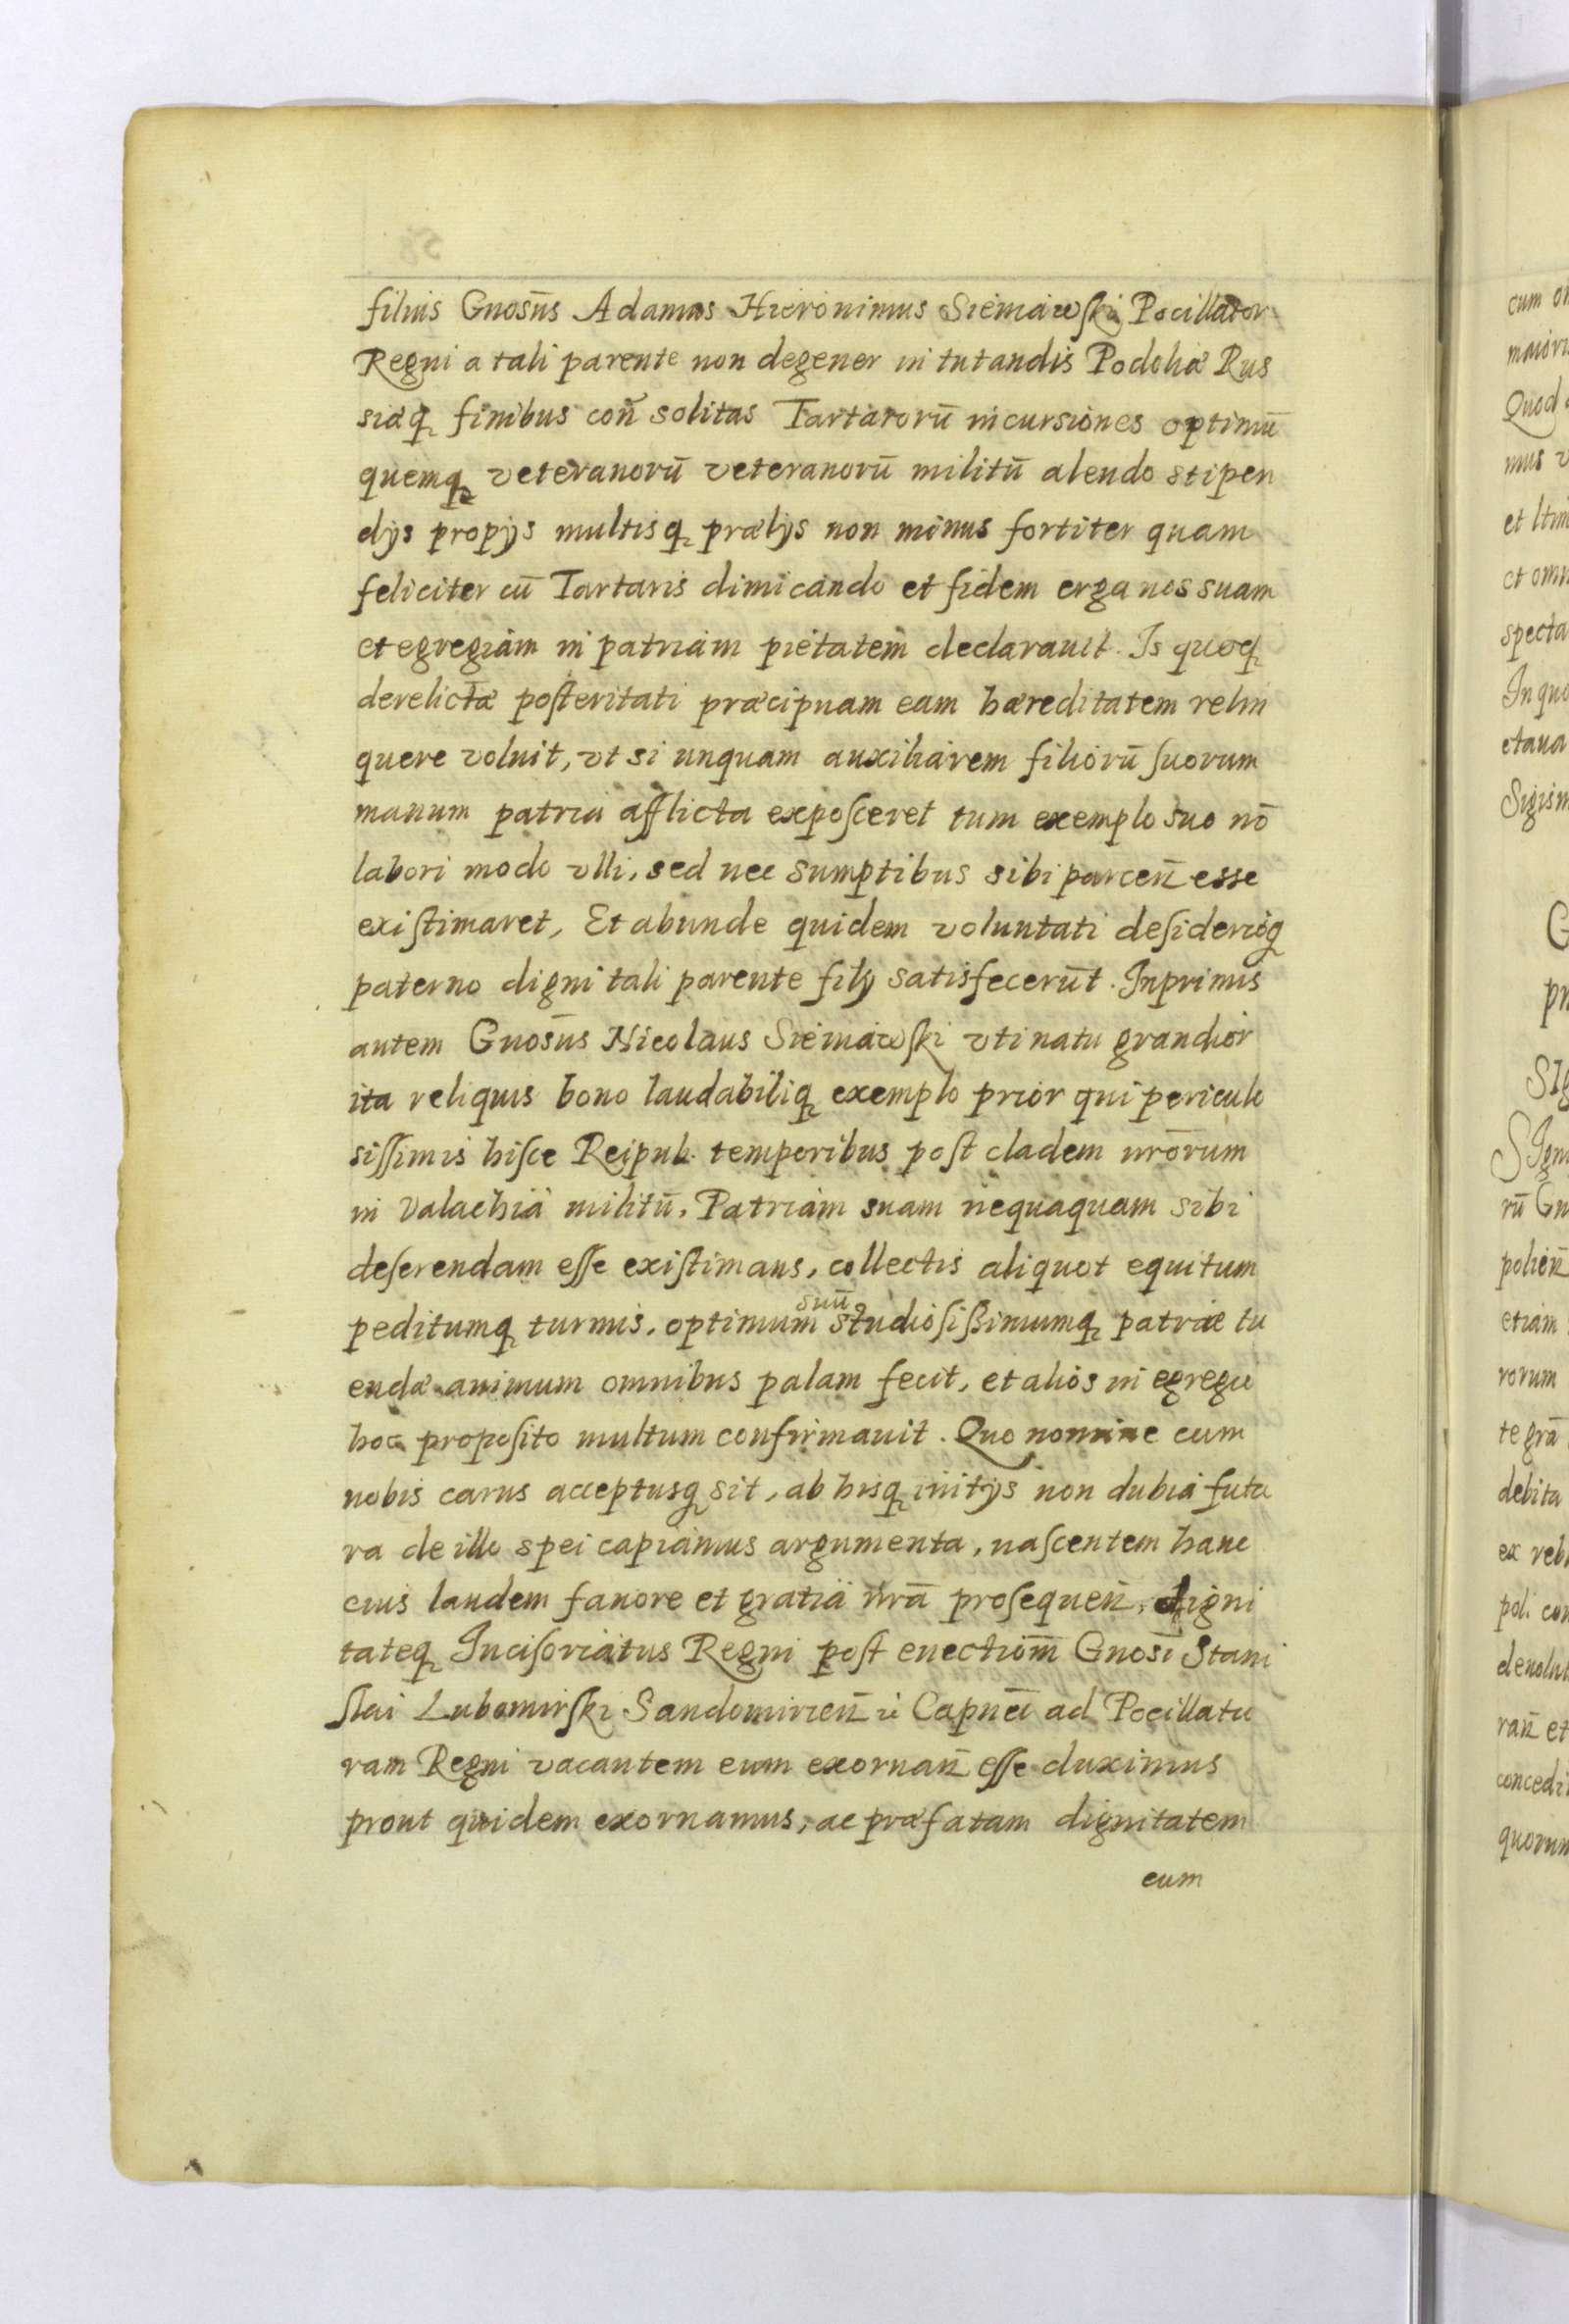 filius Gnosus̄ Adamus Hieronimus Sieniawski Pocillator
Regni a tali parente non degener in tutandis Podoliæ Rus
siæq̨ finibus con̄ solitas Tartarorū incursiones optimū
quemq̨ veteranorū veteranorū militū alendo stipen
dÿs propÿs multisq̨ prælÿs non minus fortiter quam
feliciter cū Tartaris dimicando et fidem erga nos suam
et egregiam in patriam pietatem declarauit. Is quoq̨
derelictæ poſteritati præcipuam eam hæreditatem relin
quere voluit, vt si unquam auxiliarem filiorū ſuorum
manum patria afflicta expoſceret tum exemplo suo nō
labori modo vlli, sed nec sumptibus sibi parcen̄ esse
exiſtimaret, Et abunde quidem voluntati deſiderioq̨
paterno digni tali parente filÿ satisfecerūt. Inprimis
autem Gnosūs Nicolaus Sieniawſki vti natu grandior
ita reliquis bono laudabiliq̨ exemplo prior qui periculo
siſſimis hiſce Reipub. temporibus poſt cladem nrōrum
in Valachia militū, Patriam suam nequaquam sibi
deſerendam eſſe exiſtimans, collectis aliquot equitum
peditumq̨ turmis, optimum suū studioſiſſimumq̨ patriæ tu
endæ animum omnibus palam fecit, et alios in egregio
hoc propoſito multum confirmauit. Quo nomine cum
nobis carus acceptusq̨ sit, ab hisq̨ initÿs non dubia futu
ra de illo spei capiamus argumenta, naſcentem hanc
eius laudem fauore et gratia nrā proſequen̄, digni
tateq̨ Inciſoriatus Regni poſt euectiōm Gnosī Stani
ſlai Lubomirſki Sandomirien̄ Capneī ad Pocillatu
ram Regni vacantem eum exornan̄ eſſe duximus
prout quidem exornamus, ac præfatam dignitatem
eum
cum
Quod
mus
et
et
specta
In quo
Sigism
rū
polien̄
etiam
rorum
te grā
debita
ex
poli
ran̄ et